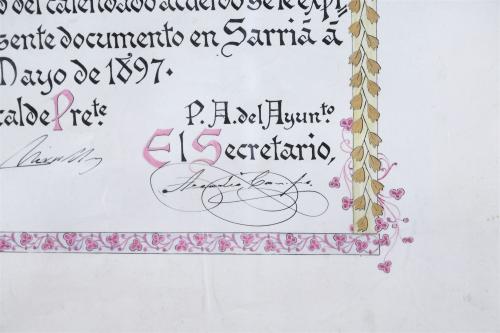 del calendado acuerdo se le expi-
sente documento en Sarriá á
Mayo de 1897.
calde Pret.e P. A. del Ayunt.o
El Secretario,